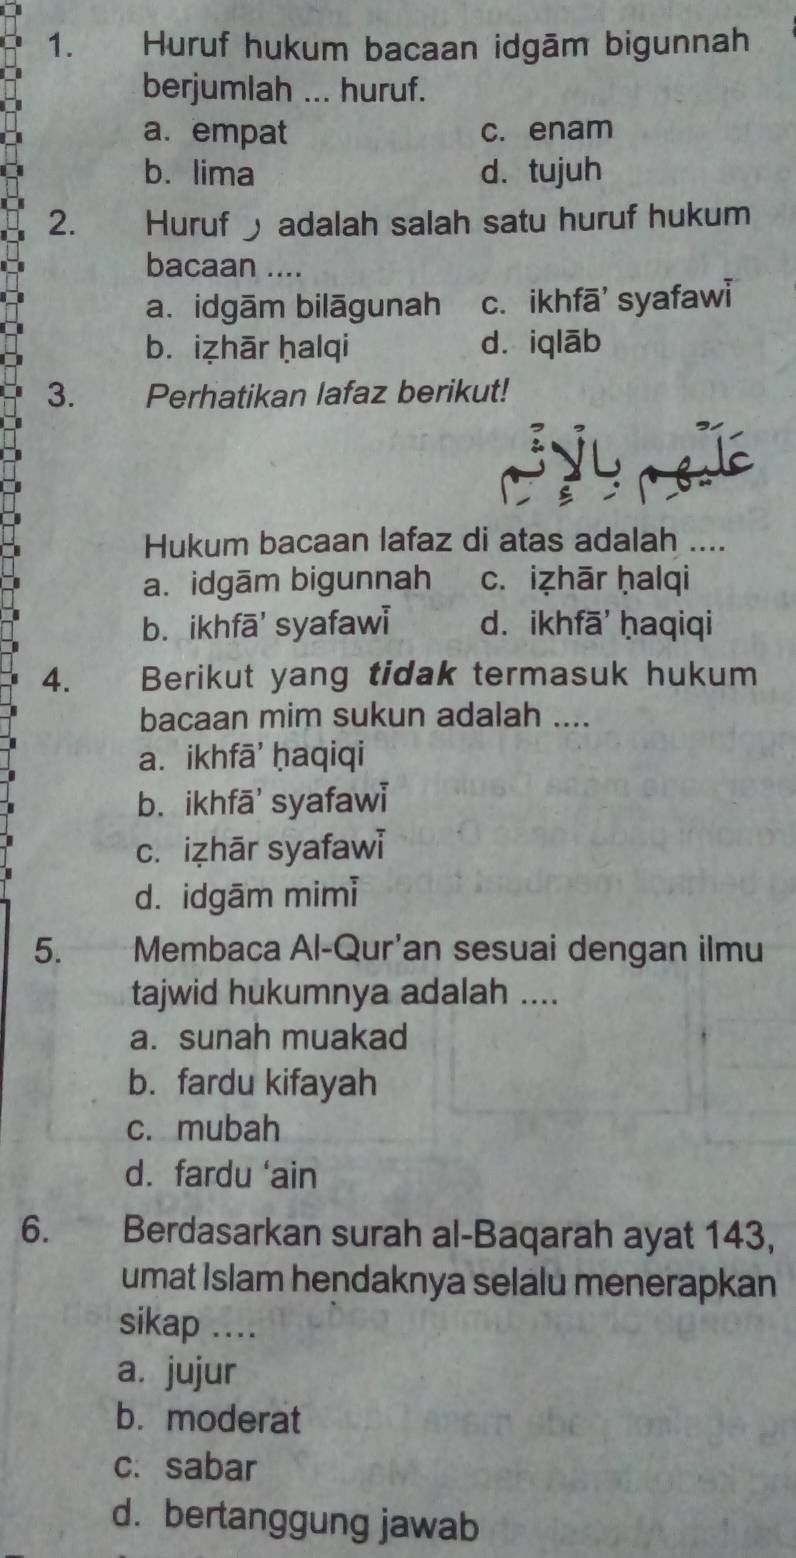 1. Huruf hukum bacaan idgām bigunnah
berjumlah ... huruf.
a. empat c. enam
b. lima d. tujuh
2. Huruf ر adalah salah satu huruf hukum
bacaan ....
a. idgām bilāgunah c. ikhfā' syafawī
b. iẓhār ḥalqi d. iqlāb
3. Perhatikan lafaz berikut!
عَلَيْهِمْ بِالْإِثْمِ
Hukum bacaan lafaz di atas adalah ....
a. idgām bigunnah c. iẓhār ḥalqi
b. ikhfā' syafawī d. ikhfā' ḥaqiqi
4. Berikut yang tidak termasuk hukum
bacaan mim sukun adalah ....
a. ikhfā' ḥaqiqi
b. ikhfā' syafawī
c. iẓhār syafawī
d. idgām mimī
5. Membaca Al-Qur'an sesuai dengan ilmu
tajwid hukumnya adalah ....
a. sunah muakad
b. fardu kifayah
c. mubah
d. fardu 'ain
6. Berdasarkan surah al-Baqarah ayat 143,
umat Islam hendaknya selalu menerapkan
sikap ....
a. jujur
b. moderat
c. sabar
d. bertanggung jawab